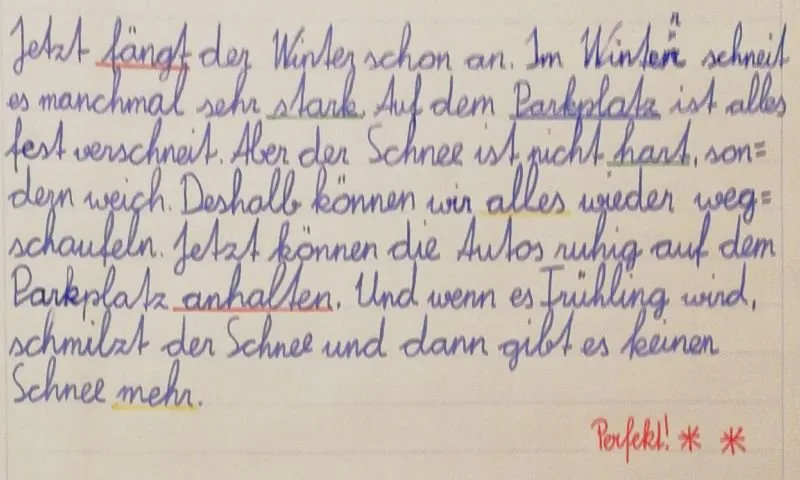 Jetzt fängt der Winter schon an. Im Winter schneit
es manchmal sehr stark. Auf dem Parkplatz ist alles
fest verschneit. Aber der Schnee ist nicht hart, son=
dern weich. Deshalb können wir alles wieder weg=
schaufeln. Jetzt können die Autos ruhig auf dem
Parkplatz anhalten. Und wenn es Frühling wird,
schmilzt der Schnee und dann gibt es keinen
Schnee mehr.
Perfekt! * *